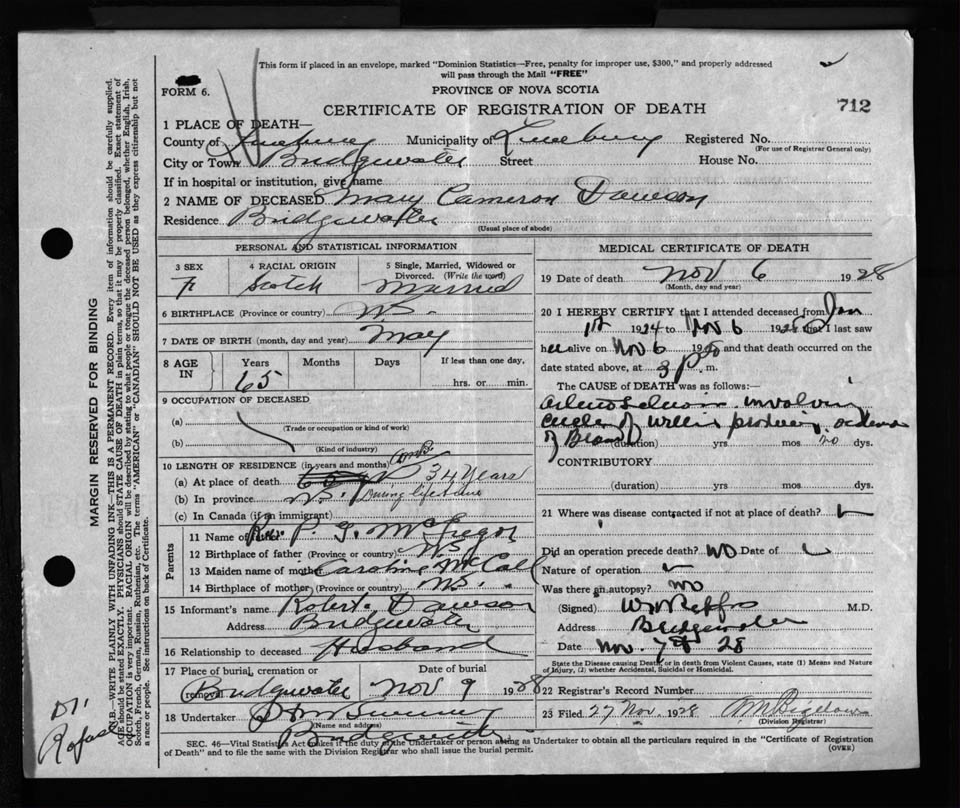 This form if placed in an envelope, marked "Dominion Statistics—Free, penalty for improper use, $300," and properly addressed
will pass through the Mail "FREE"
FORM 6.
PROVINCE OF NOVA SCOTIA
CERTIFICATE OF REGISTRATION OF DEATH
712
1 PLACE OF DEATH—
County of Lunenburg Municipality of Lunenburg Registered No.
(For use of Registrar General only)
City or Town Bridgewater Street House No.
If in hospital or institution, give name
2 NAME OF DECEASED Mary Cameron Dawson
Residence Bridgewater
(Usual place of abode)
PERSONAL AND STATISTICAL INFORMATION
3 SEX 4 RACIAL ORIGIN 5 Single, Married, Widowed or
Divorced. (Write the word)
F Scotch Married
6 BIRTHPLACE (Province or country) N.S.
7 DATE OF BIRTH (month, day and year) May
8 AGE IN Years Months Days If less than one day,
65 hrs. or min.
9 OCCUPATION OF DECEASED
(a)
(Trade or occupation or kind of work)
(b)
(Kind of industry)
10 LENGTH OF RESIDENCE (in years and months)
(a) At place of death 34 years
(b) In province N.S. During lifetime
(c) In Canada (if an immigrant)
Parents
11 Name of father Rev. P. G. McGregor
12 Birthplace of father (Province or country) N.S.
13 Maiden name of mother Caroline McColl
14 Birthplace of mother (Province or country) N.S.
15 Informant's name Robert Dawson
Address Bridgewater
16 Relationship to deceased Husband
17 Place of burial, cremation or removal Date of burial
Bridgewater Nov 9 1928
18 Undertaker
(Name and address)
Bridgewater
MEDICAL CERTIFICATE OF DEATH
19 Date of death Nov 6 1928
(Month, day and year)
20 I HEREBY CERTIFY that I attended deceased from Jan
1st 1924 to Nov 6 1928 that I last saw
her alive on Nov 6 and that death occurred on the
date stated above, at 3 p. m.
The CAUSE of DEATH was as follows:—
involving
circle of Willis producing oedema
of Brain (duration) yrs mos dys.
CONTRIBUTORY
(duration) yrs mos dys.
21 Where was disease contracted if not at place of death?
Did an operation precede death? No Date of
Nature of operation
Was there an autopsy? No
(Signed) M.D.
Address Bridgewater
Date Nov. 7th 28
State the Disease causing Death, or in death from Violent Causes, state (1) Means and Nature
of Injury, (2) whether Accidental, Suicidal or Homicidal.
22 Registrar's Record Number
23 Filed 27 Nov 1928 Bigelow
(Division Registrar)
SEC. 46—Vital Statistics Act makes it the duty of the Undertaker or person acting as Undertaker to obtain all the particulars required in the "Certificate of Registration
of Death" and to file the same with the Division Registrar who shall issue the burial permit.
(OVER)
MARGIN RESERVED FOR BINDING
N.B.—WRITE PLAINLY WITH UNFADING INK—THIS IS A PERMANENT RECORD. Every item of information should be carefully supplied.
AGE should be stated EXACTLY. PHYSICIANS should STATE CAUSE OF DEATH in plain terms, so that it may be properly classified. Exact statement of
OCCUPATION is very important. RACIAL ORIGIN will be described by stating to what people or tongue the deceased person belonged, whether English, Irish,
Scotch, French, German, Russian, Ruthenian, etc. The terms "AMERICAN" or "CANADIAN" SHOULD NOT BE USED as they express citizenship but not
a race or people. See instructions on back of Certificate.